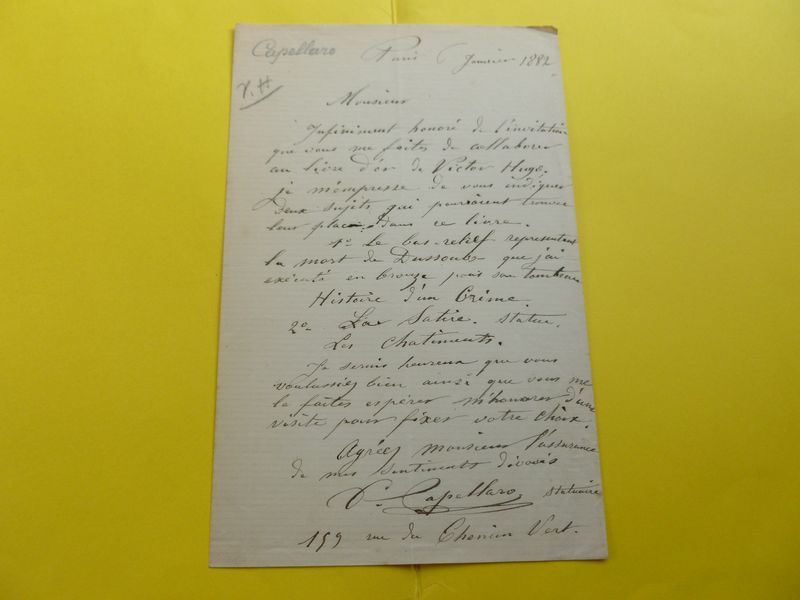 Capellaro
V.H
Paris 6 Janvier 1882
Monsieur
Infiniment honoré de l'invitation
que vous me faites de collaborer
au livre d'or de Victor Hugo.
je m'empresse de vous indiquer
deux sujets qui pourraient trouver
leur place dans ce livre.
1º Le bas-relief représentant
la mort de Dussoubs que j'ai
exécuté en bronze pour son tombeau
Histoire d'un Crime.
2º La Satire. statue.
Les Chatiments.
Je serais heureux que vous
voulussiez bien ainsi que vous me
le faites espérer m'honorer d'une
visite pour fixer votre choix.
Agréez monsieur l'assurance
de mes sentiments dévoués
Capellaro statuaire
159 rue du Chemin Vert.